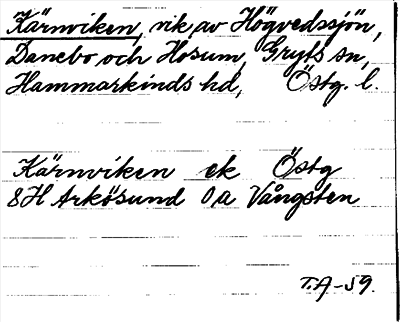 Kärnviken, vik av Högvedssjön,
Danebo och Hosum, Gryts sn,
Hammarkinds hd, Östg. l.
Kärnviken ek Östg
8H Arkösund 0a Vångsten
T.A-59.